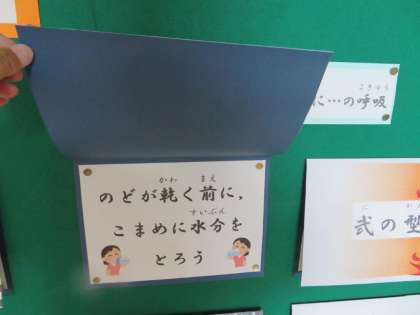 こきゅう
に…の呼吸
かわ まえ
のどが乾く前に，
すいぶん
こまめに水分を
とろう
に かた
弐の型